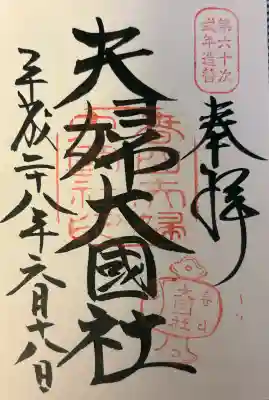 第六十次
式年造替
奉拝
夫婦大國社
平成二十八年六月十八日